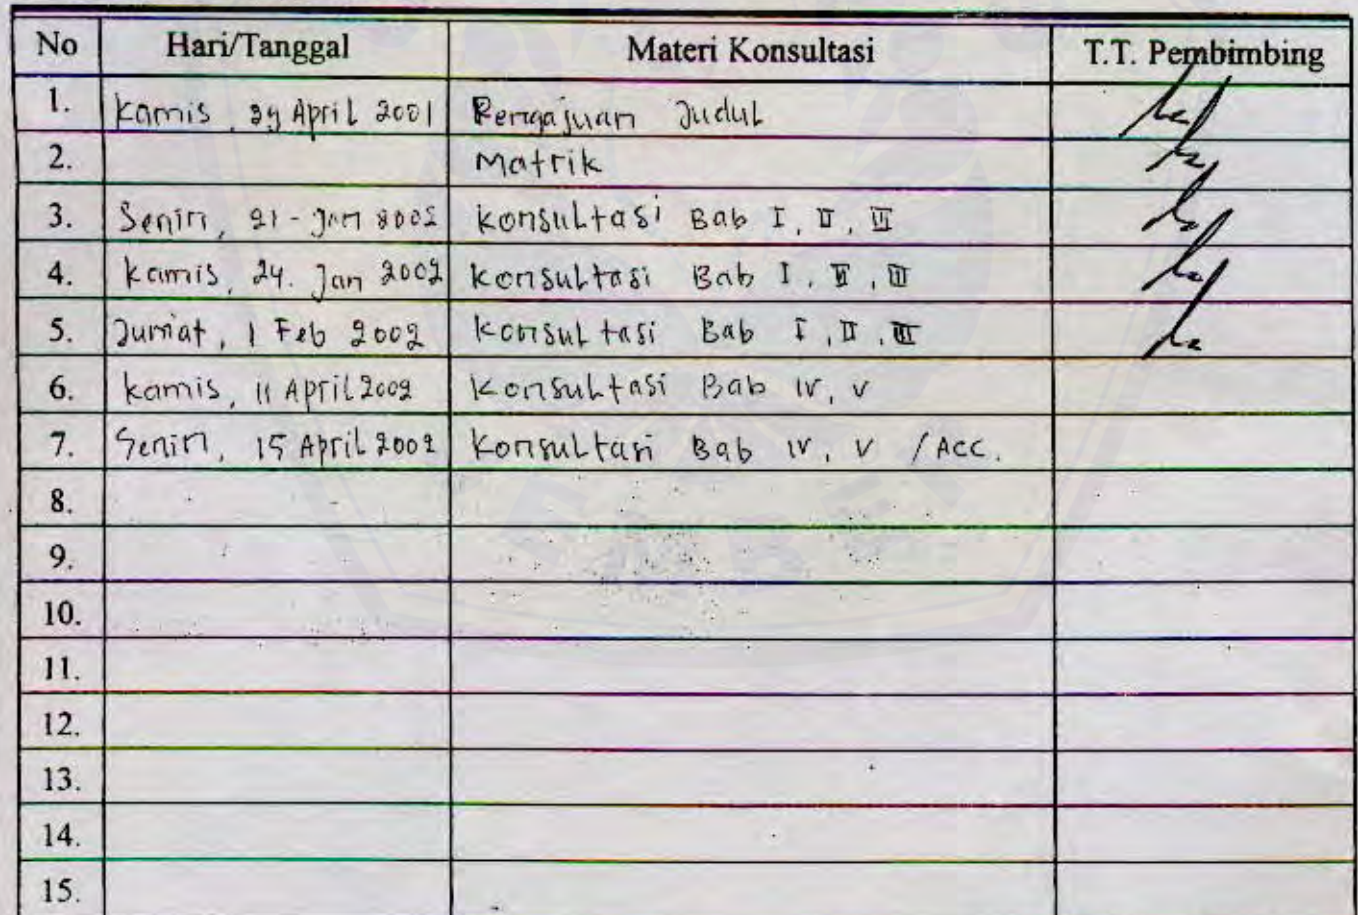 No Hari/Tanggal Materi Konsultasi T.T. Pembimbing
1. Kamis, 24 April 2001 Pengajuan Judul
2. Matrik
3. Senin, 21 - Jan 2002 Konsultasi Bab I, II, III
4. Kamis, 24. Jan 2002 Konsultasi Bab I, II, III
5. Jum'at, 1 Feb 2002 Konsultasi Bab I, II, III
6. Kamis, 11 April 2002 Konsultasi Bab IV, V
7. Senin, 15 April 2002 Konsultasi Bab IV, V / Acc.
8.
9.
10.
11.
12.
13.
14.
15.